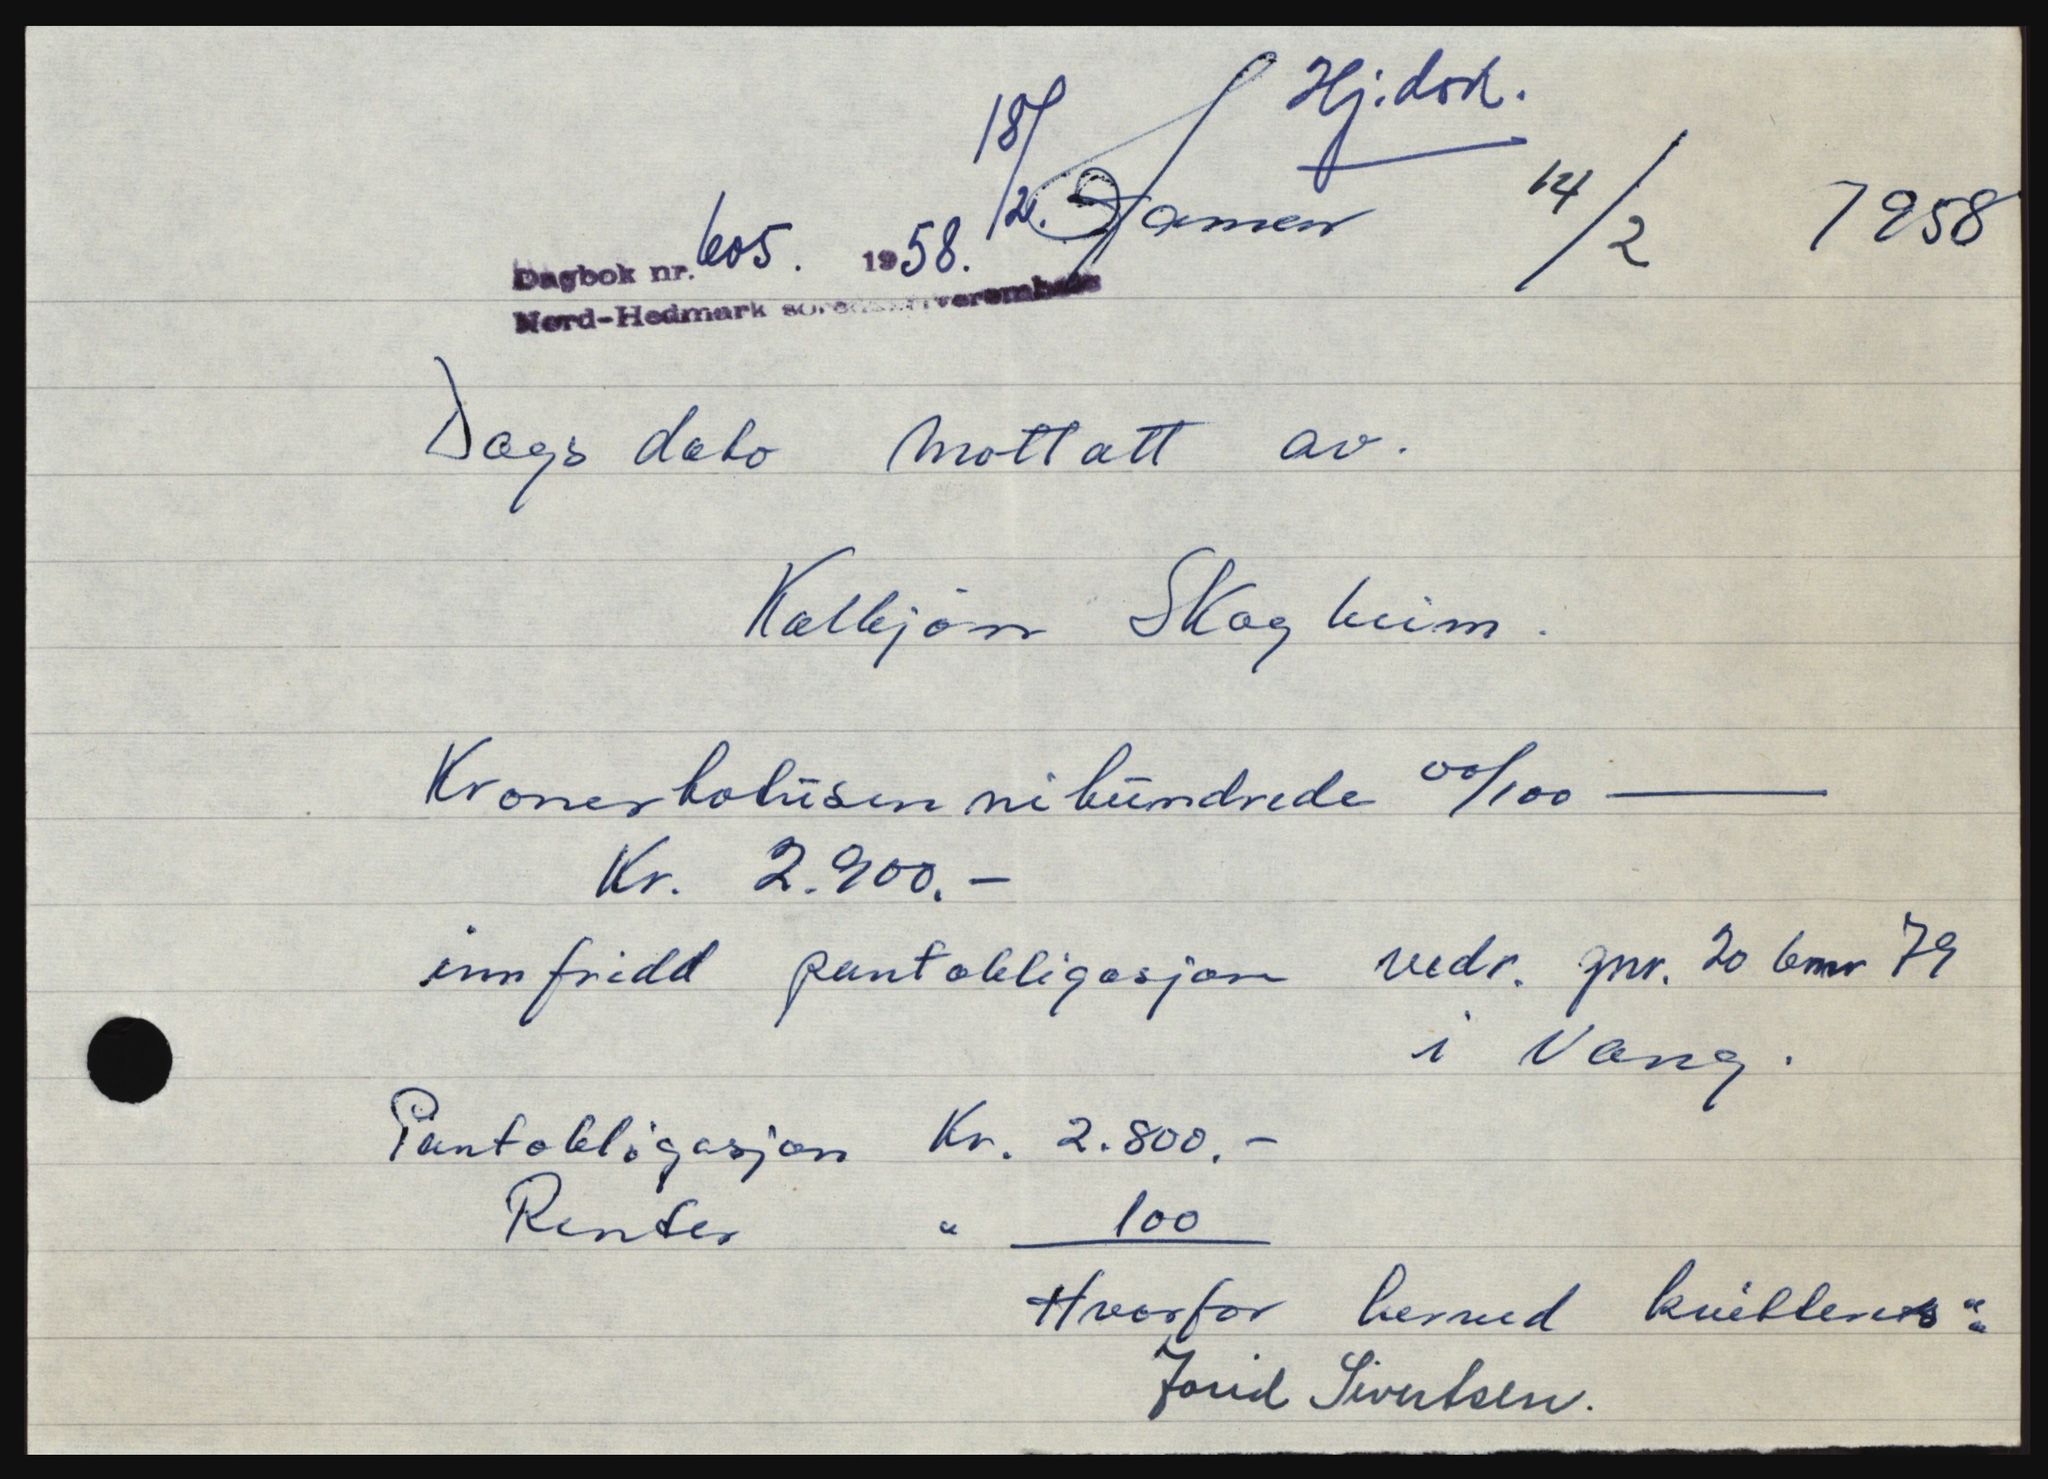 Hj.dok.
18/2. Hamar 14/2 1958
Dagbok nr. 605. 1958.
Nord-Hedmark sorenskriverembete
Dags dato mottatt av.
Kolbjörn Skogheim.
Kroner totüsen nihündrede 00/100 ———
Kr. 2.900.-
innfridd pantobligasjon vedr. gnr. 20 bnr 79
i Vang.
Pantobligasjon Kr. 2.800.-
Renter " 100
Hvorfor herved kvitteres "
Jorid Sivertsen.